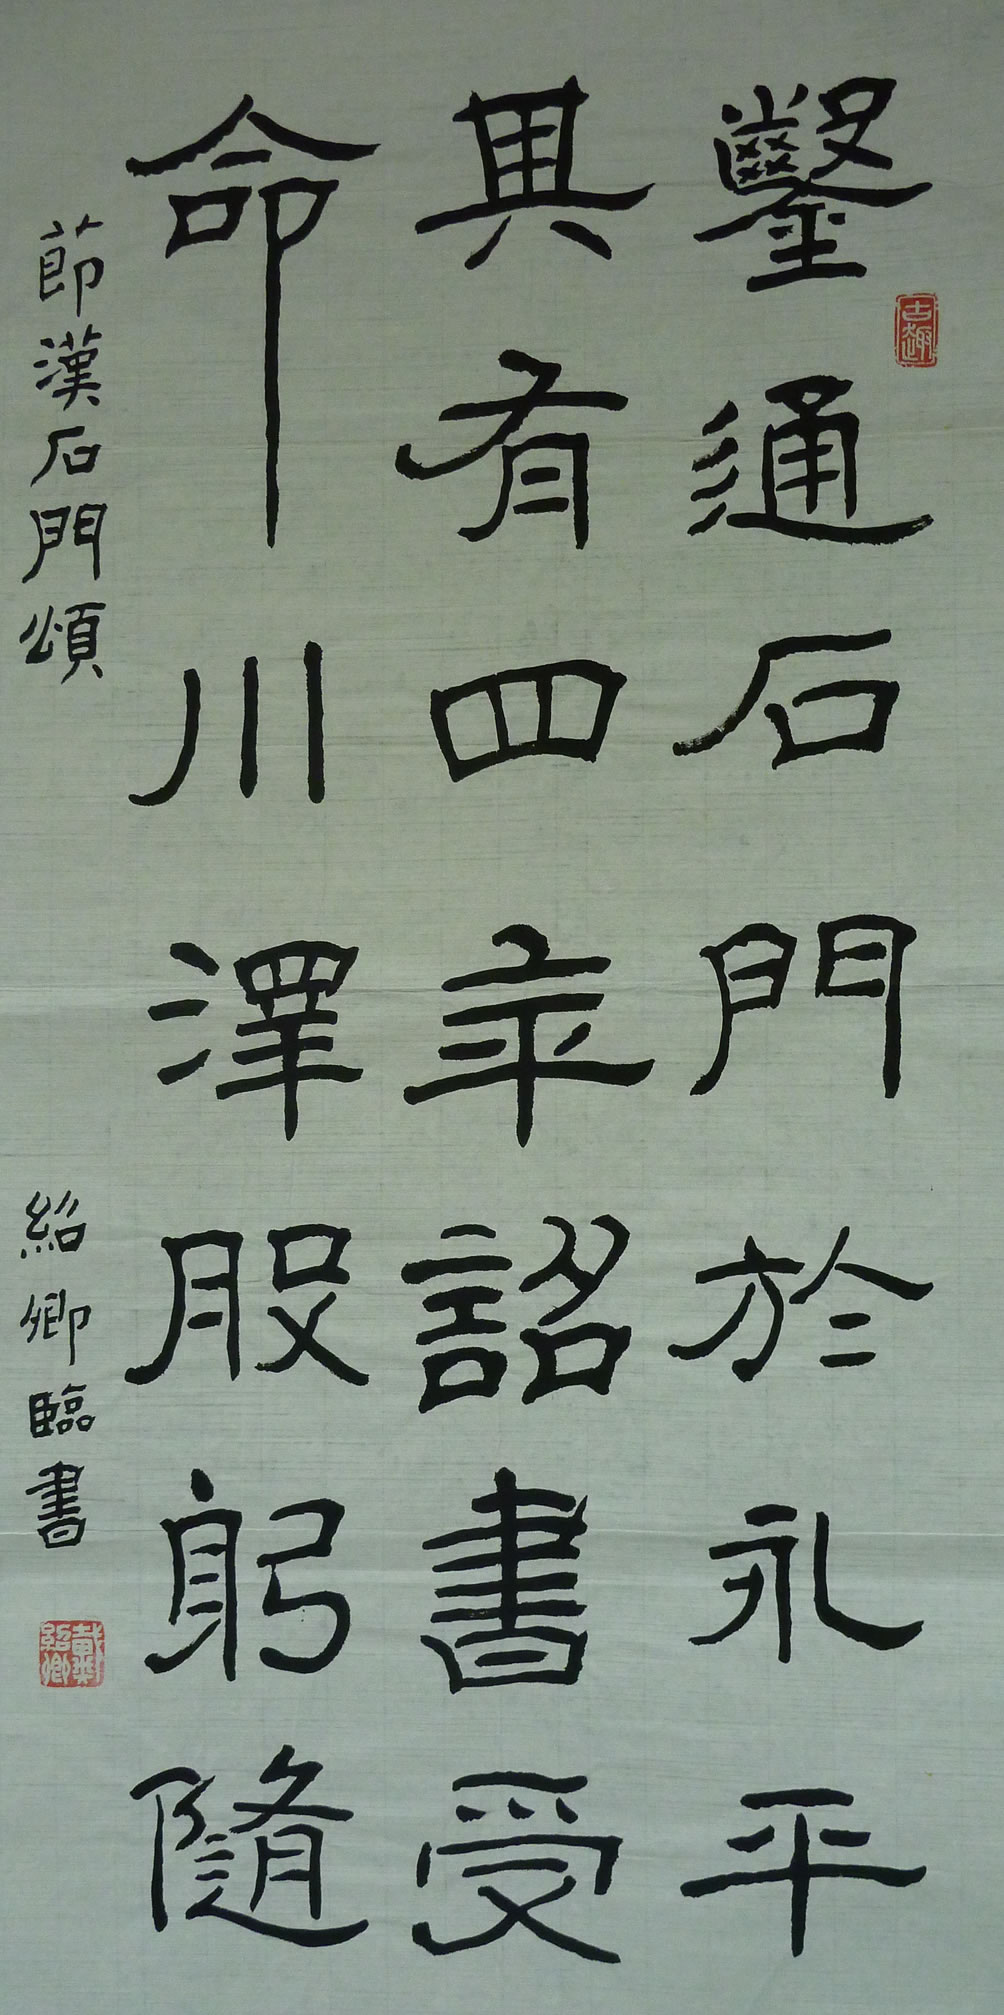 鑿通石門於永平
其有四年詔書受
命川澤股躬隨
節漢石門頌
紹卿臨書
古趣
戴紹卿